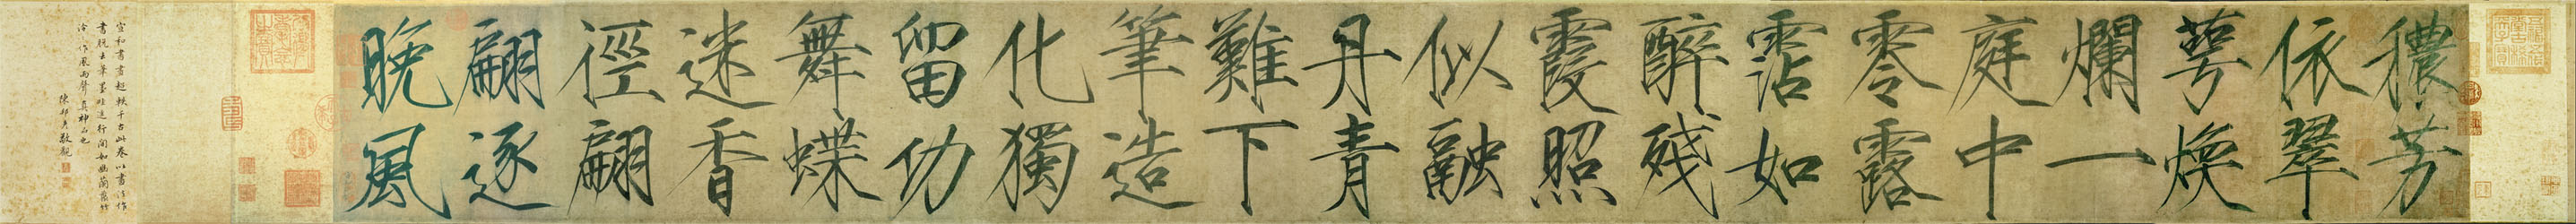 穠芳
依翠
萼煥
爛一
庭中
零露
霑如
醉殘
霞照
似融
丹青
難下
筆造
化獨
留功
舞蝶
迷香
徑翩
翩逐
晚風
宣和書畫超軼千古此卷以書法作
畫脫去筆墨畦逕行間如幽蘭叢竹
泠泠作風雨聲真神品也
陳邦彥敬觀